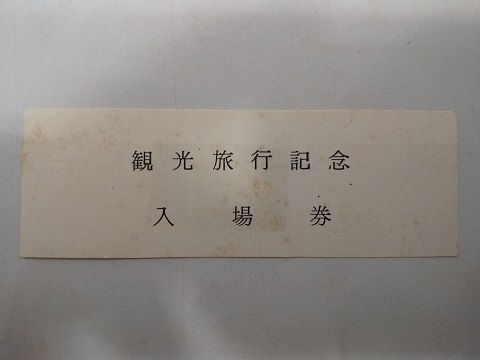 観光旅行記念
入場券